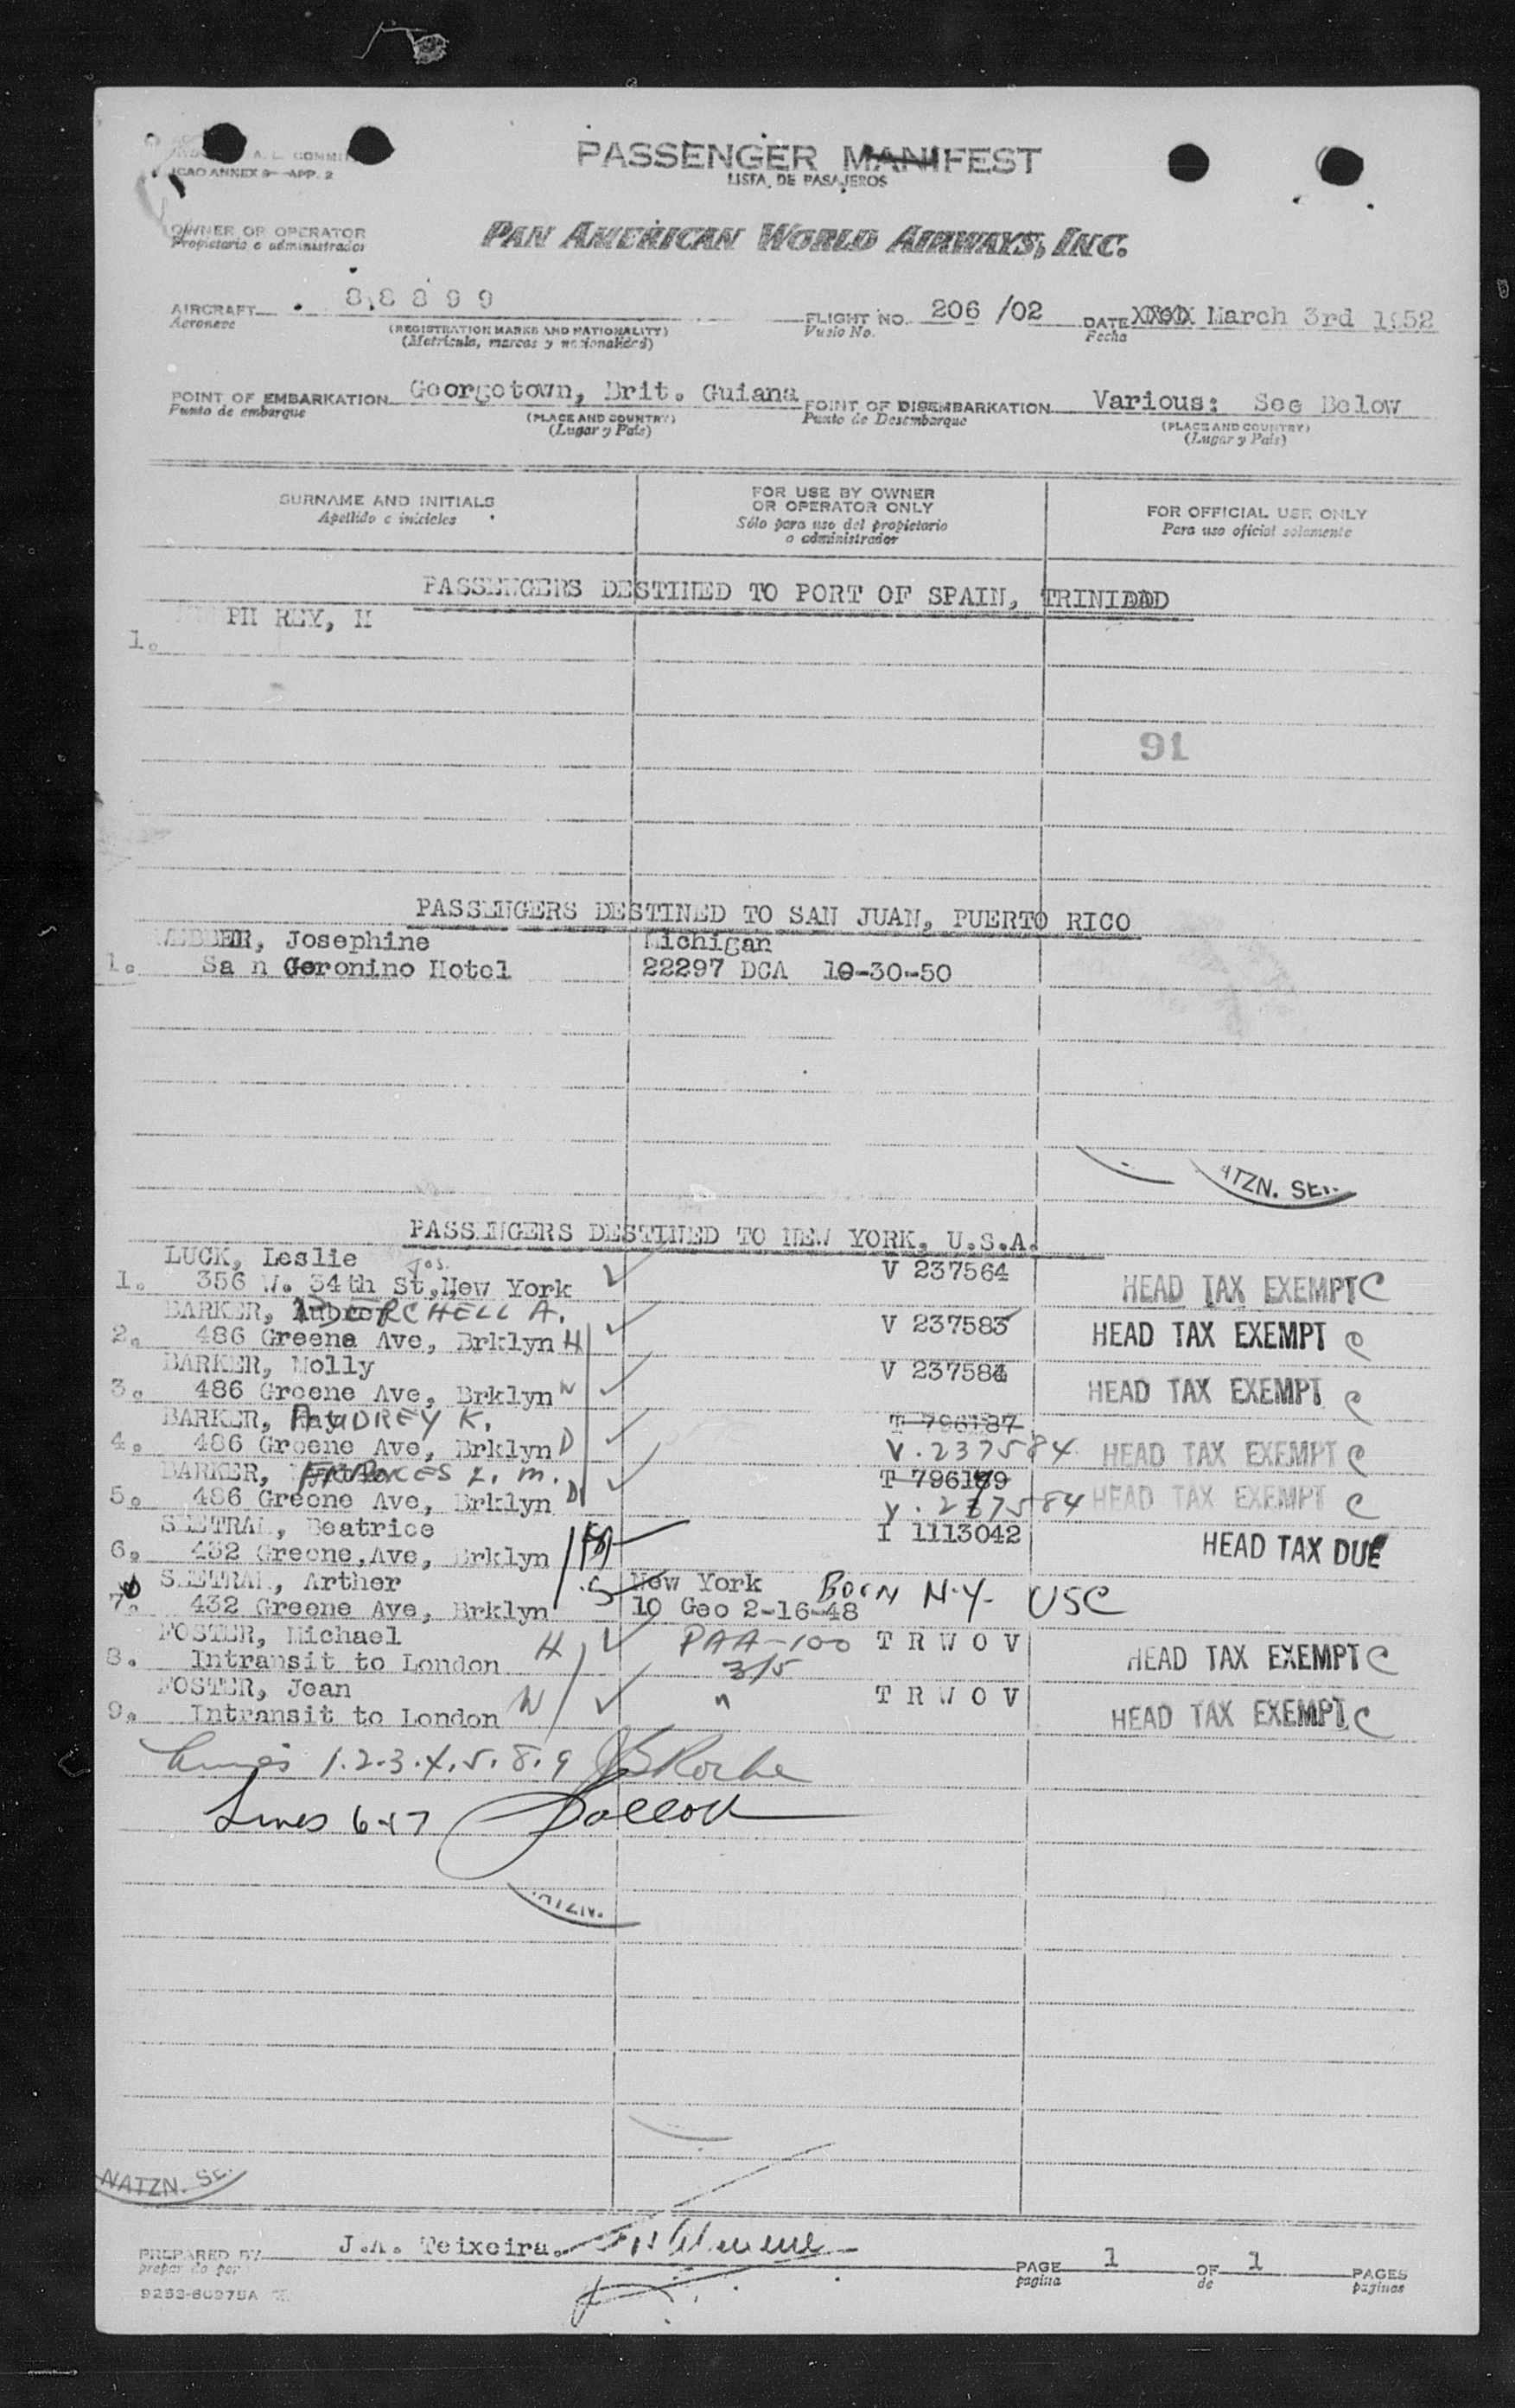 PASSENGER MANIFEST
LISTA DE PASAJEROS
ICAO ANNEX 9—APP. 2
OWNER OR OPERATOR
Propietario o administrador
PAN AMERICAN WORLD AIRWAYS, INC.
AIRCRAFT 88899 FLIGHT NO. 206 /02 DATE March 3rd 1952
Aeronave (REGISTRATION MARKS AND NATIONALITY) Vuelo No. Fecha
(Matricula, marcas y nacionalidad)
POINT OF EMBARKATION Georgetown, Brit. Guiana POINT OF DISEMBARKATION Various: See Below
Punto de embarque (PLACE AND COUNTRY) Punto de Desembarque (PLACE AND COUNTRY)
(Lugar y Pais) (Lugar y Pais)
SURNAME AND INITIALS FOR USE BY OWNER OR OPERATOR ONLY FOR OFFICIAL USE ONLY
Apellido e iniciales Sólo para uso del propietario o administrador Para uso oficial solamente
PASSENGERS DESTINED TO PORT OF SPAIN, TRINIDAD
PH REY, H
1.
91
PASSENGERS DESTINED TO SAN JUAN, PUERTO RICO
Josephine Michigan
1. Sa n Geronino Hotel 22297 DCA 10-30-50
ATZN. SE
PASSENGERS DESTINED TO NEW YORK, U.S.A.
LUCK, Leslie Jos. V 237564
1. 356 W. 34th St, New York HEAD TAX EXEMPT C
BARKER, BURCHELL A. V 237583
2. 486 Greene Ave, Brklyn H HEAD TAX EXEMPT C
BARKER, Molly V 237584
3. 486 Greene Ave, Brklyn W HEAD TAX EXEMPT C
BARKER, AUDREY K. T 796187
4. 486 Greene Ave, Brklyn D V. 237584 HEAD TAX EXEMPT C
BARKER, FRANCES L. M. T 796189
5. 486 Greene Ave, Brklyn D V. 237584 HEAD TAX EXEMPT C
Beatrice I 1113042
6. 432 Greene, Ave, Brklyn HEAD TAX DUE
Arther New York BORN N.Y. USC
7. 432 Greene Ave, Brklyn S 10 Geo 2-16-48
FOSTER, Michael PAA-100 T R W O V
8. Intransit to London H 3/5 HEAD TAX EXEMPT C
FOSTER, Jean " T R W O V
9. Intransit to London W HEAD TAX EXEMPT C
Lines 1.2.3.4.5.8.9 Roche
Lines 6+7
NATZN. SE
PREPARED BY J.A. Teixeira. PAGE 1 OF 1 PAGES
prepar do por pagina de paginas